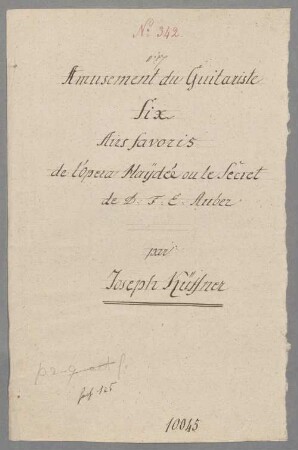 No 342
Amusement du Guitariste
Six
Airs favoris
de l'opera Haÿdée ou le Sècret
de D. F. E. Auber
par
Joseph Küffner
10045